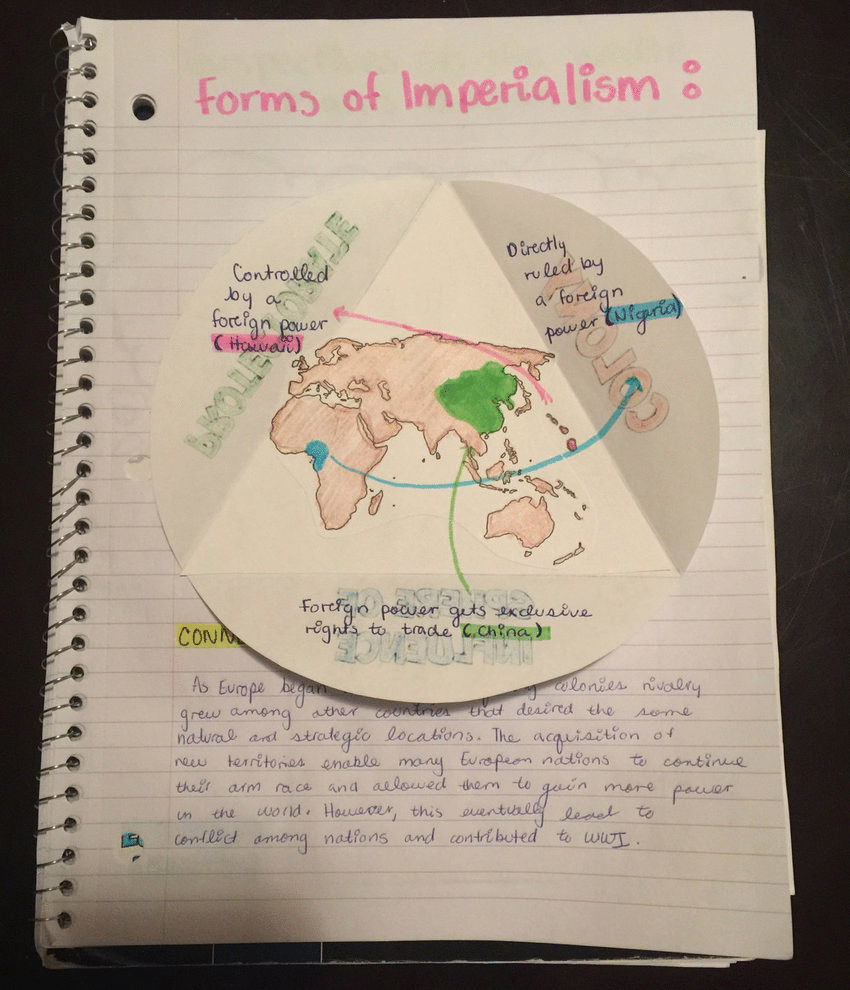 Forms of Imperialism :
Controlled
by a
foreign power
(Hawaii)
PROTECTORATE
Directly
ruled by
a foreign
power (Nigeria)
COLONY
Foreign power gets exclusive
rights to trade (China)
SPHERE OF
INFLUENCE
As Europe began colonies rivalry
grew among other countries that desired the same
natural and strategic locations. The acquisition of
new territories enable many European nations to continue
their arm race and allowed them to gain more power
in the world. However, this eventually lead to
conflict among nations and contributed to WWI.